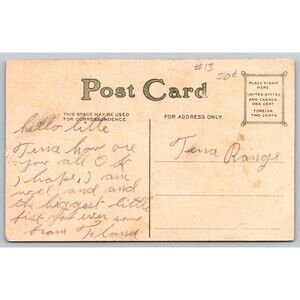 #13
50¢
Post Card
THIS SPACE MAY BE USED
FOR CORRESPONDENCE.
FOR ADDRESS ONLY
PLACE STAMP
HERE
UNITED STATES
AND CANADA
ONE CENT
FOREIGN
TWO CENTS
hello little
Tena how are
you all O K
I hope, I am
well, and and
the biggest little
you ever saw
from
Tena Range